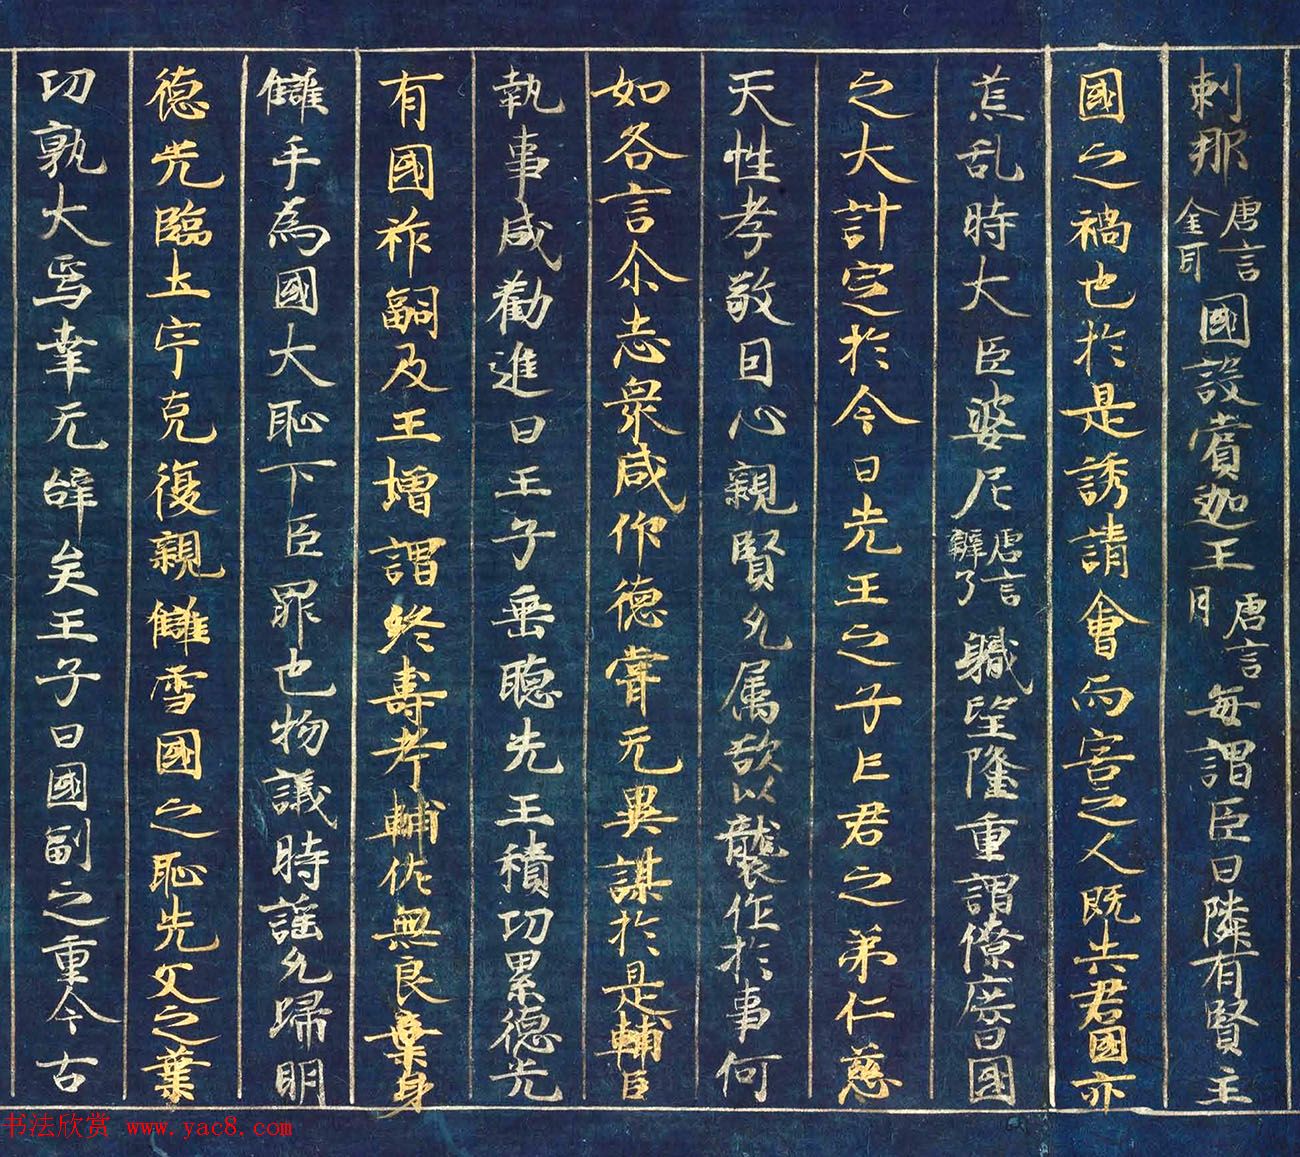 刺那唐言金耳國設賞迦王唐言月每謂臣曰隣有賢主
國之禍也於是誘請會而害之人既失君國亦
荒乱時大臣婆尼唐言辯了職望隆重謂僚庶曰國
之大計定於今日先王之子亡君之弟仁慈
天性孝敬因心親賢允属欲以襲位於事何
如各言尒志衆咸仰德甞无異謀於是輔臣
執事咸勸進曰王子垂聽先王積功累德光
有國祚嗣及王增謂終壽考輔佐無良棄身
讎手為國大恥下臣罪也物議時謡允歸明
德光臨土宇克復親讎雪國之恥光父之業
功孰大焉幸无辞矣王子曰國副之重今古
书法欣赏 www.yac8.com